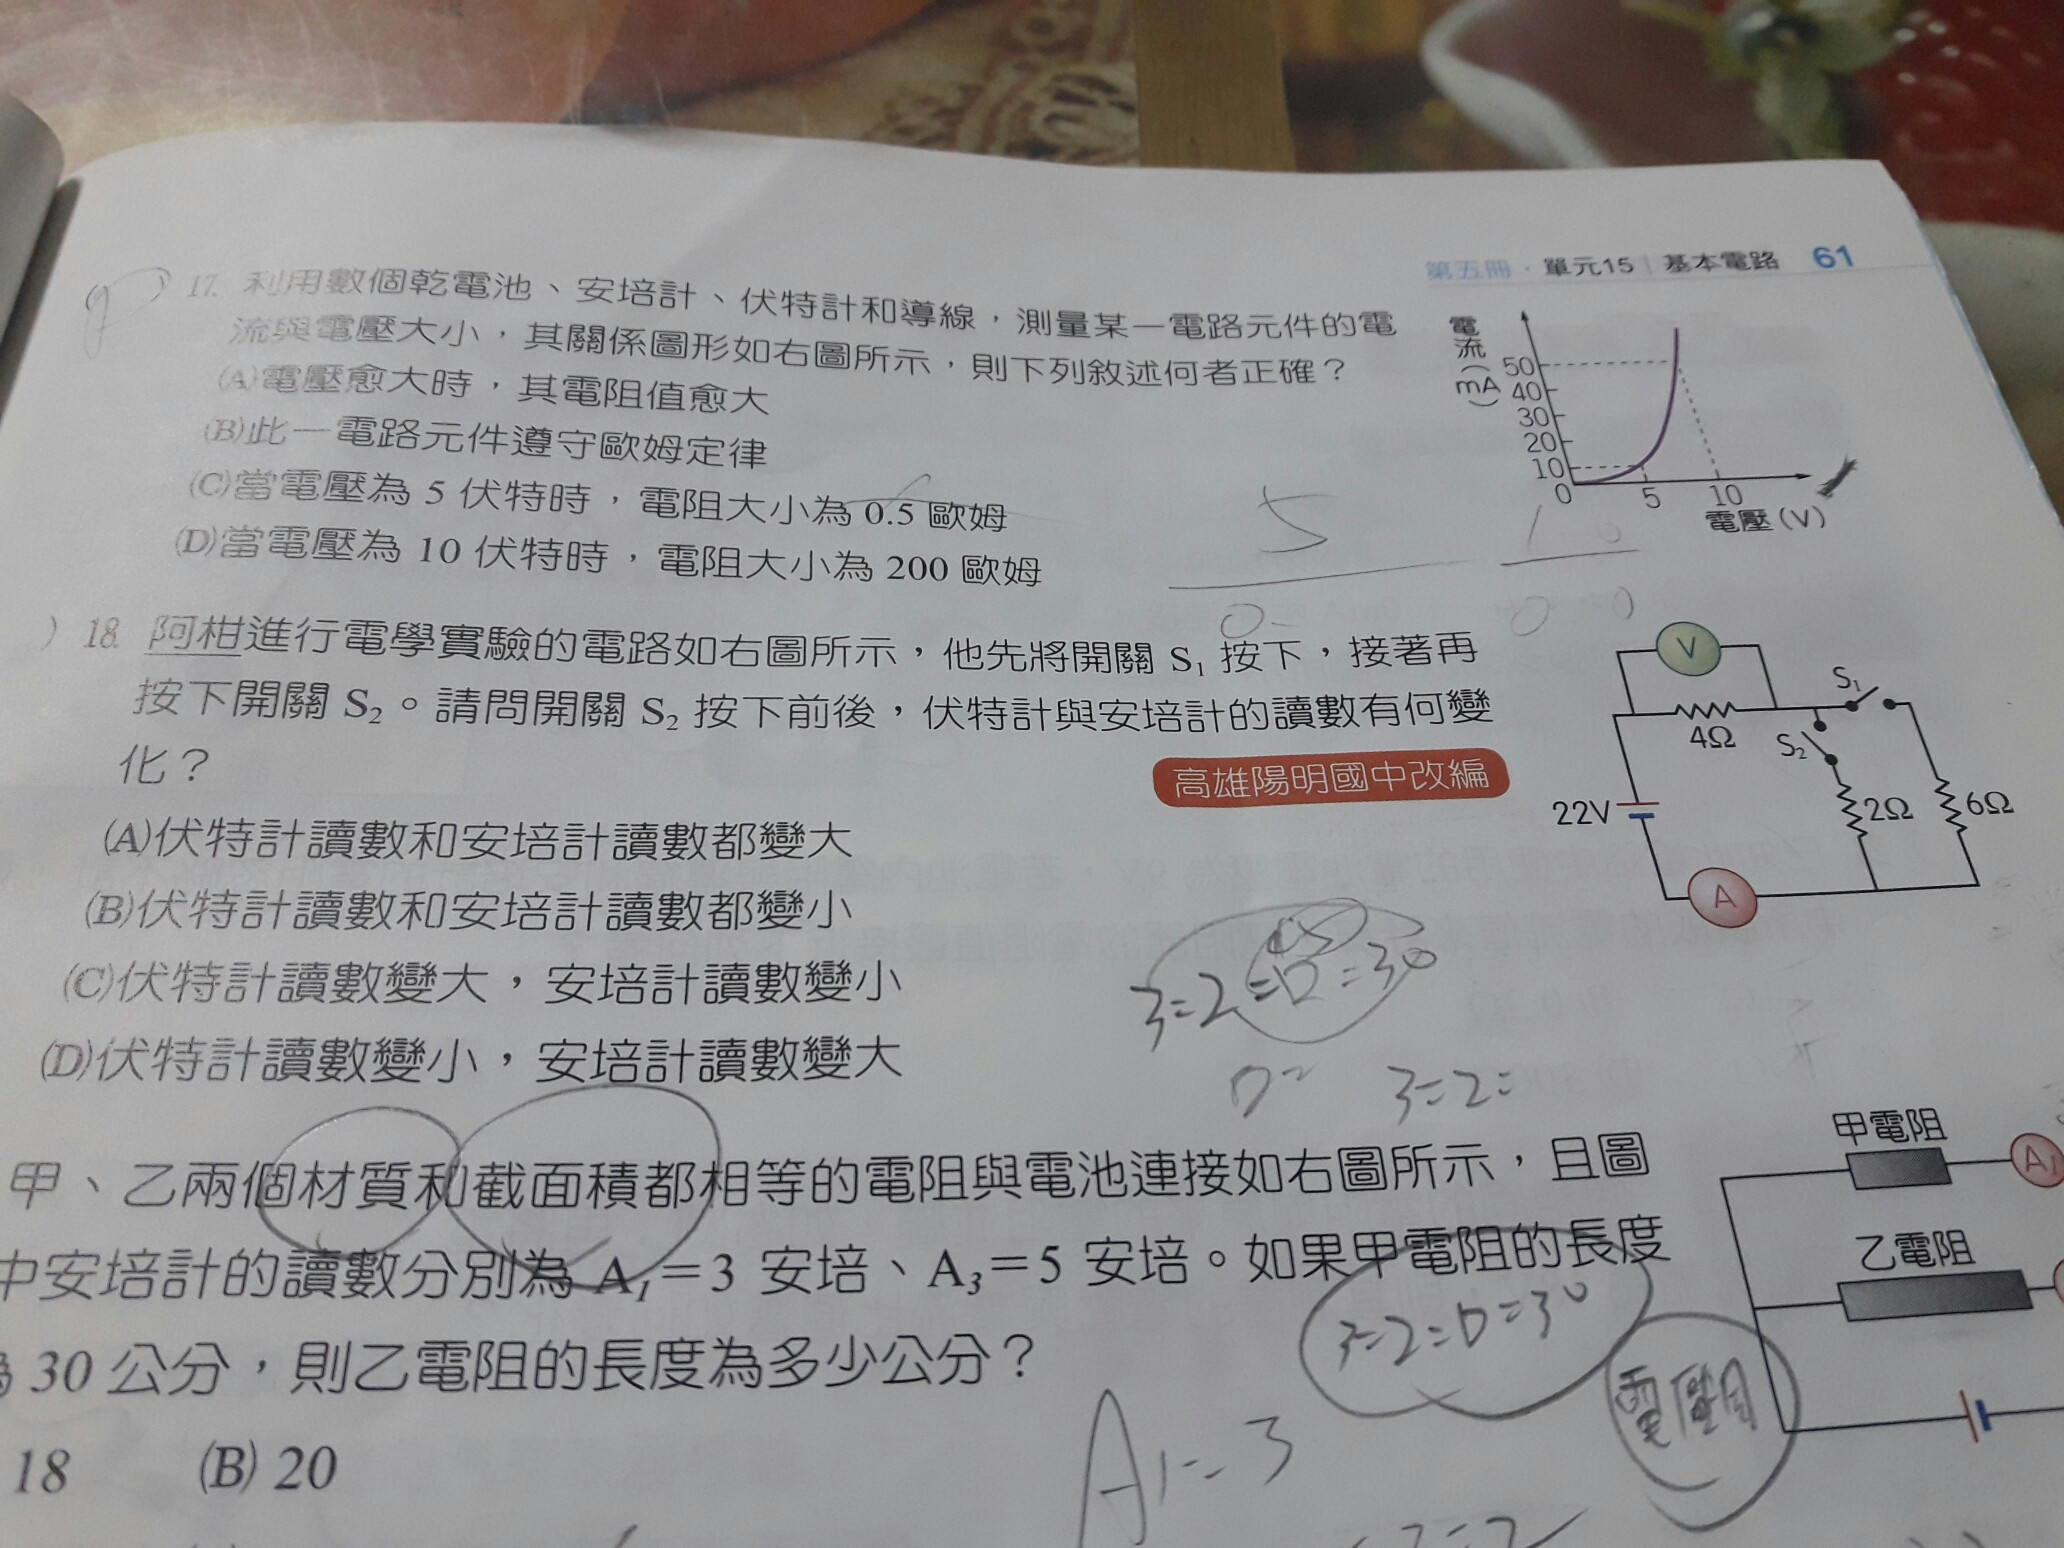 第五冊・單元15｜基本電路 61
17. 利用數個乾電池、安培計、伏特計和導線，測量某一電路元件的電
流與電壓大小，其關係圖形如右圖所示，則下列敘述何者正確？
(A)電壓愈大時，其電阻值愈大
(B)此一電路元件遵守歐姆定律
(C)當電壓為 5 伏特時，電阻大小為 0.5 歐姆
(D)當電壓為 10 伏特時，電阻大小為 200 歐姆
電流(mA)
50
40
30
20
10
0 5 10
電壓(V)
5
1 0
) 18. 阿柑進行電學實驗的電路如右圖所示，他先將開關 S₁ 按下，接著再
按下開關 S₂。請問開關 S₂ 按下前後，伏特計與安培計的讀數有何變
化？
高雄陽明國中改編
(A)伏特計讀數和安培計讀數都變大
(B)伏特計讀數和安培計讀數都變小
(C)伏特計讀數變大，安培計讀數變小
(D)伏特計讀數變小，安培計讀數變大
V
S₁
4Ω
S₂
22V
2Ω
6Ω
A
3=2
=30
3=2=
甲、乙兩個材質和截面積都相等的電阻與電池連接如右圖所示，且圖
中安培計的讀數分別為 A₁=3 安培、A₃=5 安培。如果甲電阻的長度
為 30 公分，則乙電阻的長度為多少公分？
18 (B) 20
甲電阻
A₁
乙電阻
3=2=
=30
電壓同
A1=3